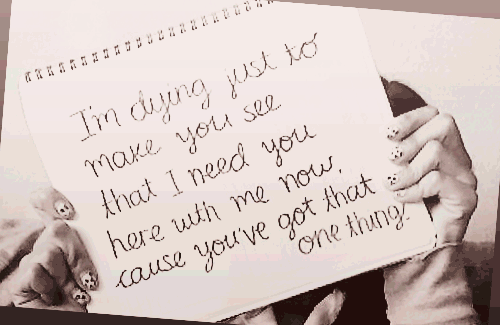 I'm dying just to
make you see
that I need you
here with me now,
cause you've got that
one thing.